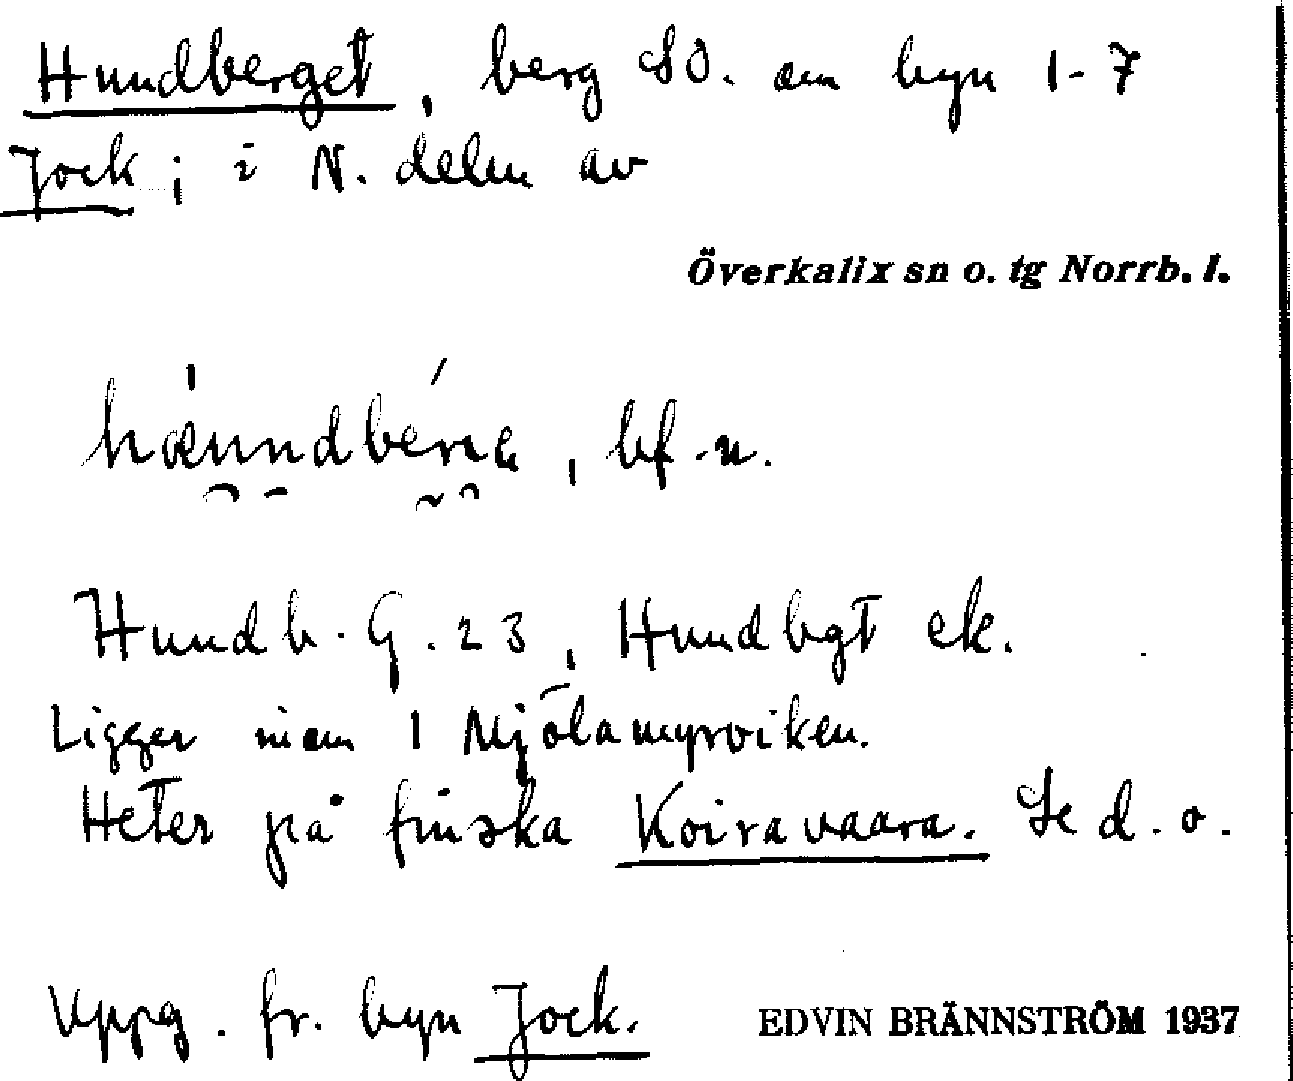 Hundberget, berg SO. om byn 1-7
Jock; i N. delen av
Överkalix sn o. tg Norrb. l.
bf -n.
Hundb. G. 23, Hundbgt ek.
Ligger inom 1 Mjölamyrviken.
Heter på finska Koiravaara. Se d. o.
Uppg. fr. byn Jock.
EDVIN BRÄNNSTRÖM 1937